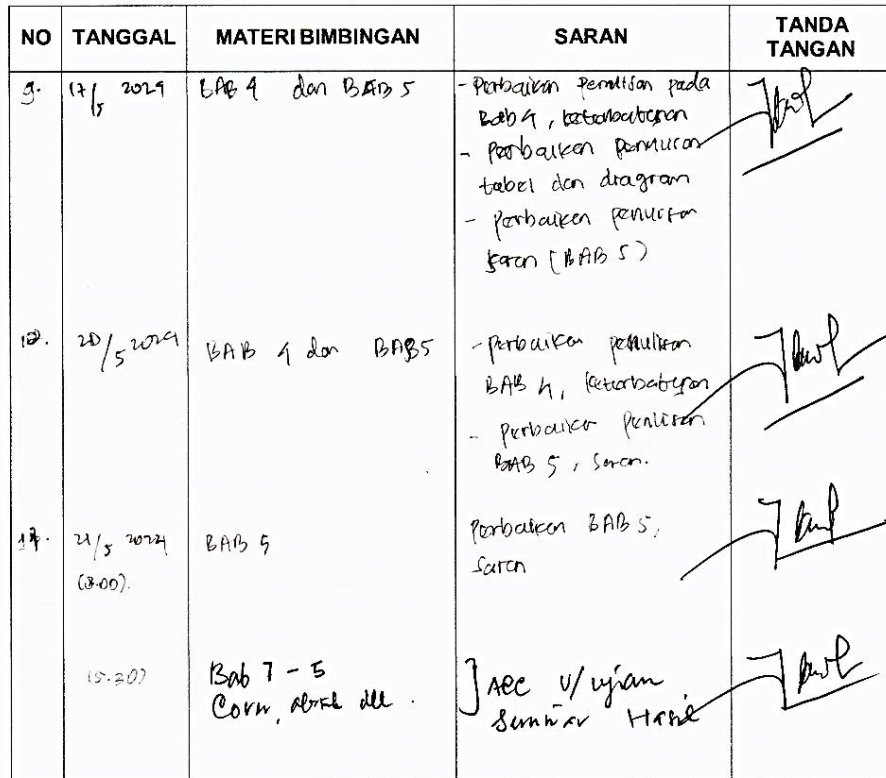 NO TANGGAL MATERI BIMBINGAN SARAN TANDA TANGAN
9. 17/5 2024 BAB 4 dan BAB 5 - Perbaikan penulisan pada
Bab 4, keterbatasan
- Perbaikan penulisan
tabel dan diagram
- Perbaikan penulisan
saran (BAB 5)
10. 20/5 2024 BAB 4 dan BAB 5 - Perbaikan penulisan
BAB 4, keterbatasan
- Perbaikan penulisan
BAB 5, saran.
21/5 2024 BAB 5 Perbaikan BAB 5,
saran
Bab 1 - 5 ] ACC U/ ujian
Cover, dll. Seminar Hasil